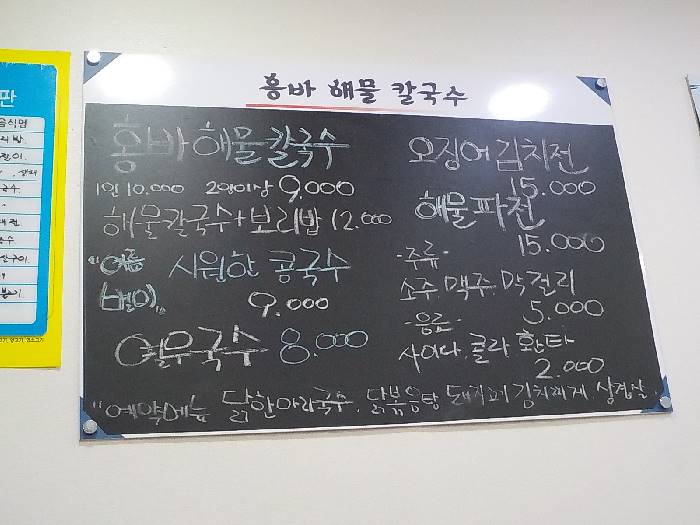 홍바 해물 칼국수
홍바 해물칼국수
1인 10.000 2인이상 9.000
해물칼국수+보리밥 12.000
"여름 시원한 콩국수
별미" 9.000
열무국수 8.000
오징어김치전
15.000
해물파전
15.000
-주류-
소주.맥주.막걸리
5.000
-음료-
사이다.콜라 환타
2.000
"예약메뉴 닭한마리국수. 닭볶음탕 김치찌개 삼겹살.
판
음식명